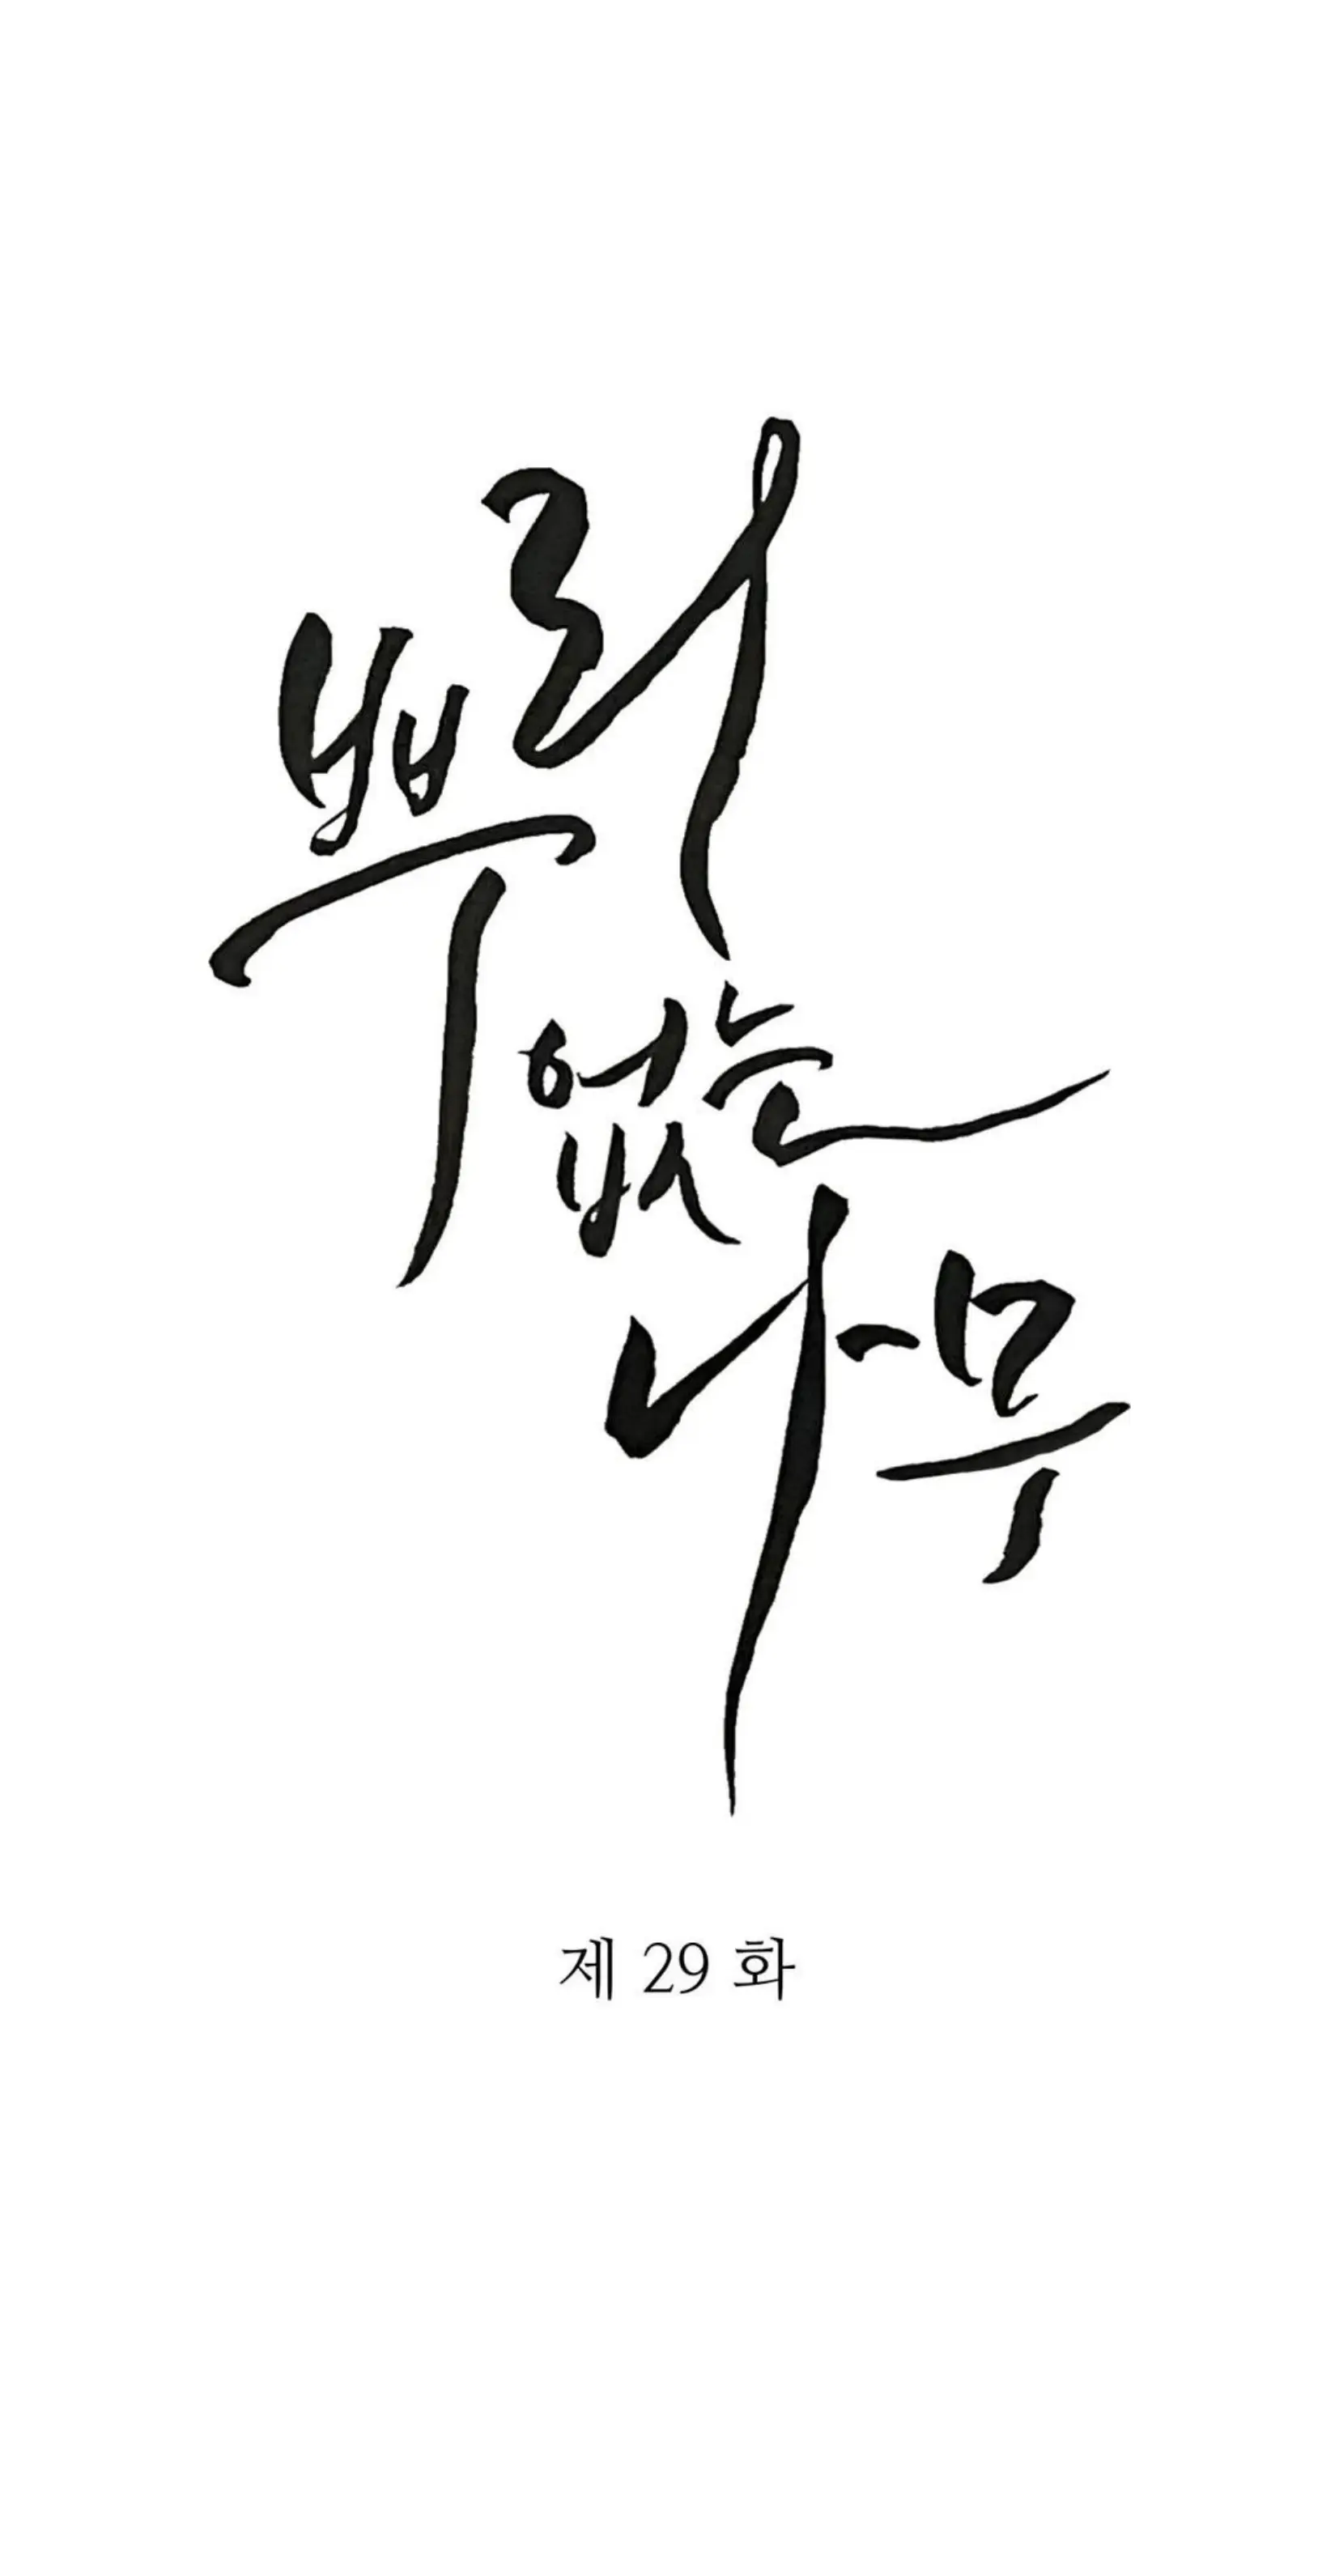 뿌리
없는
나무
제 29 화